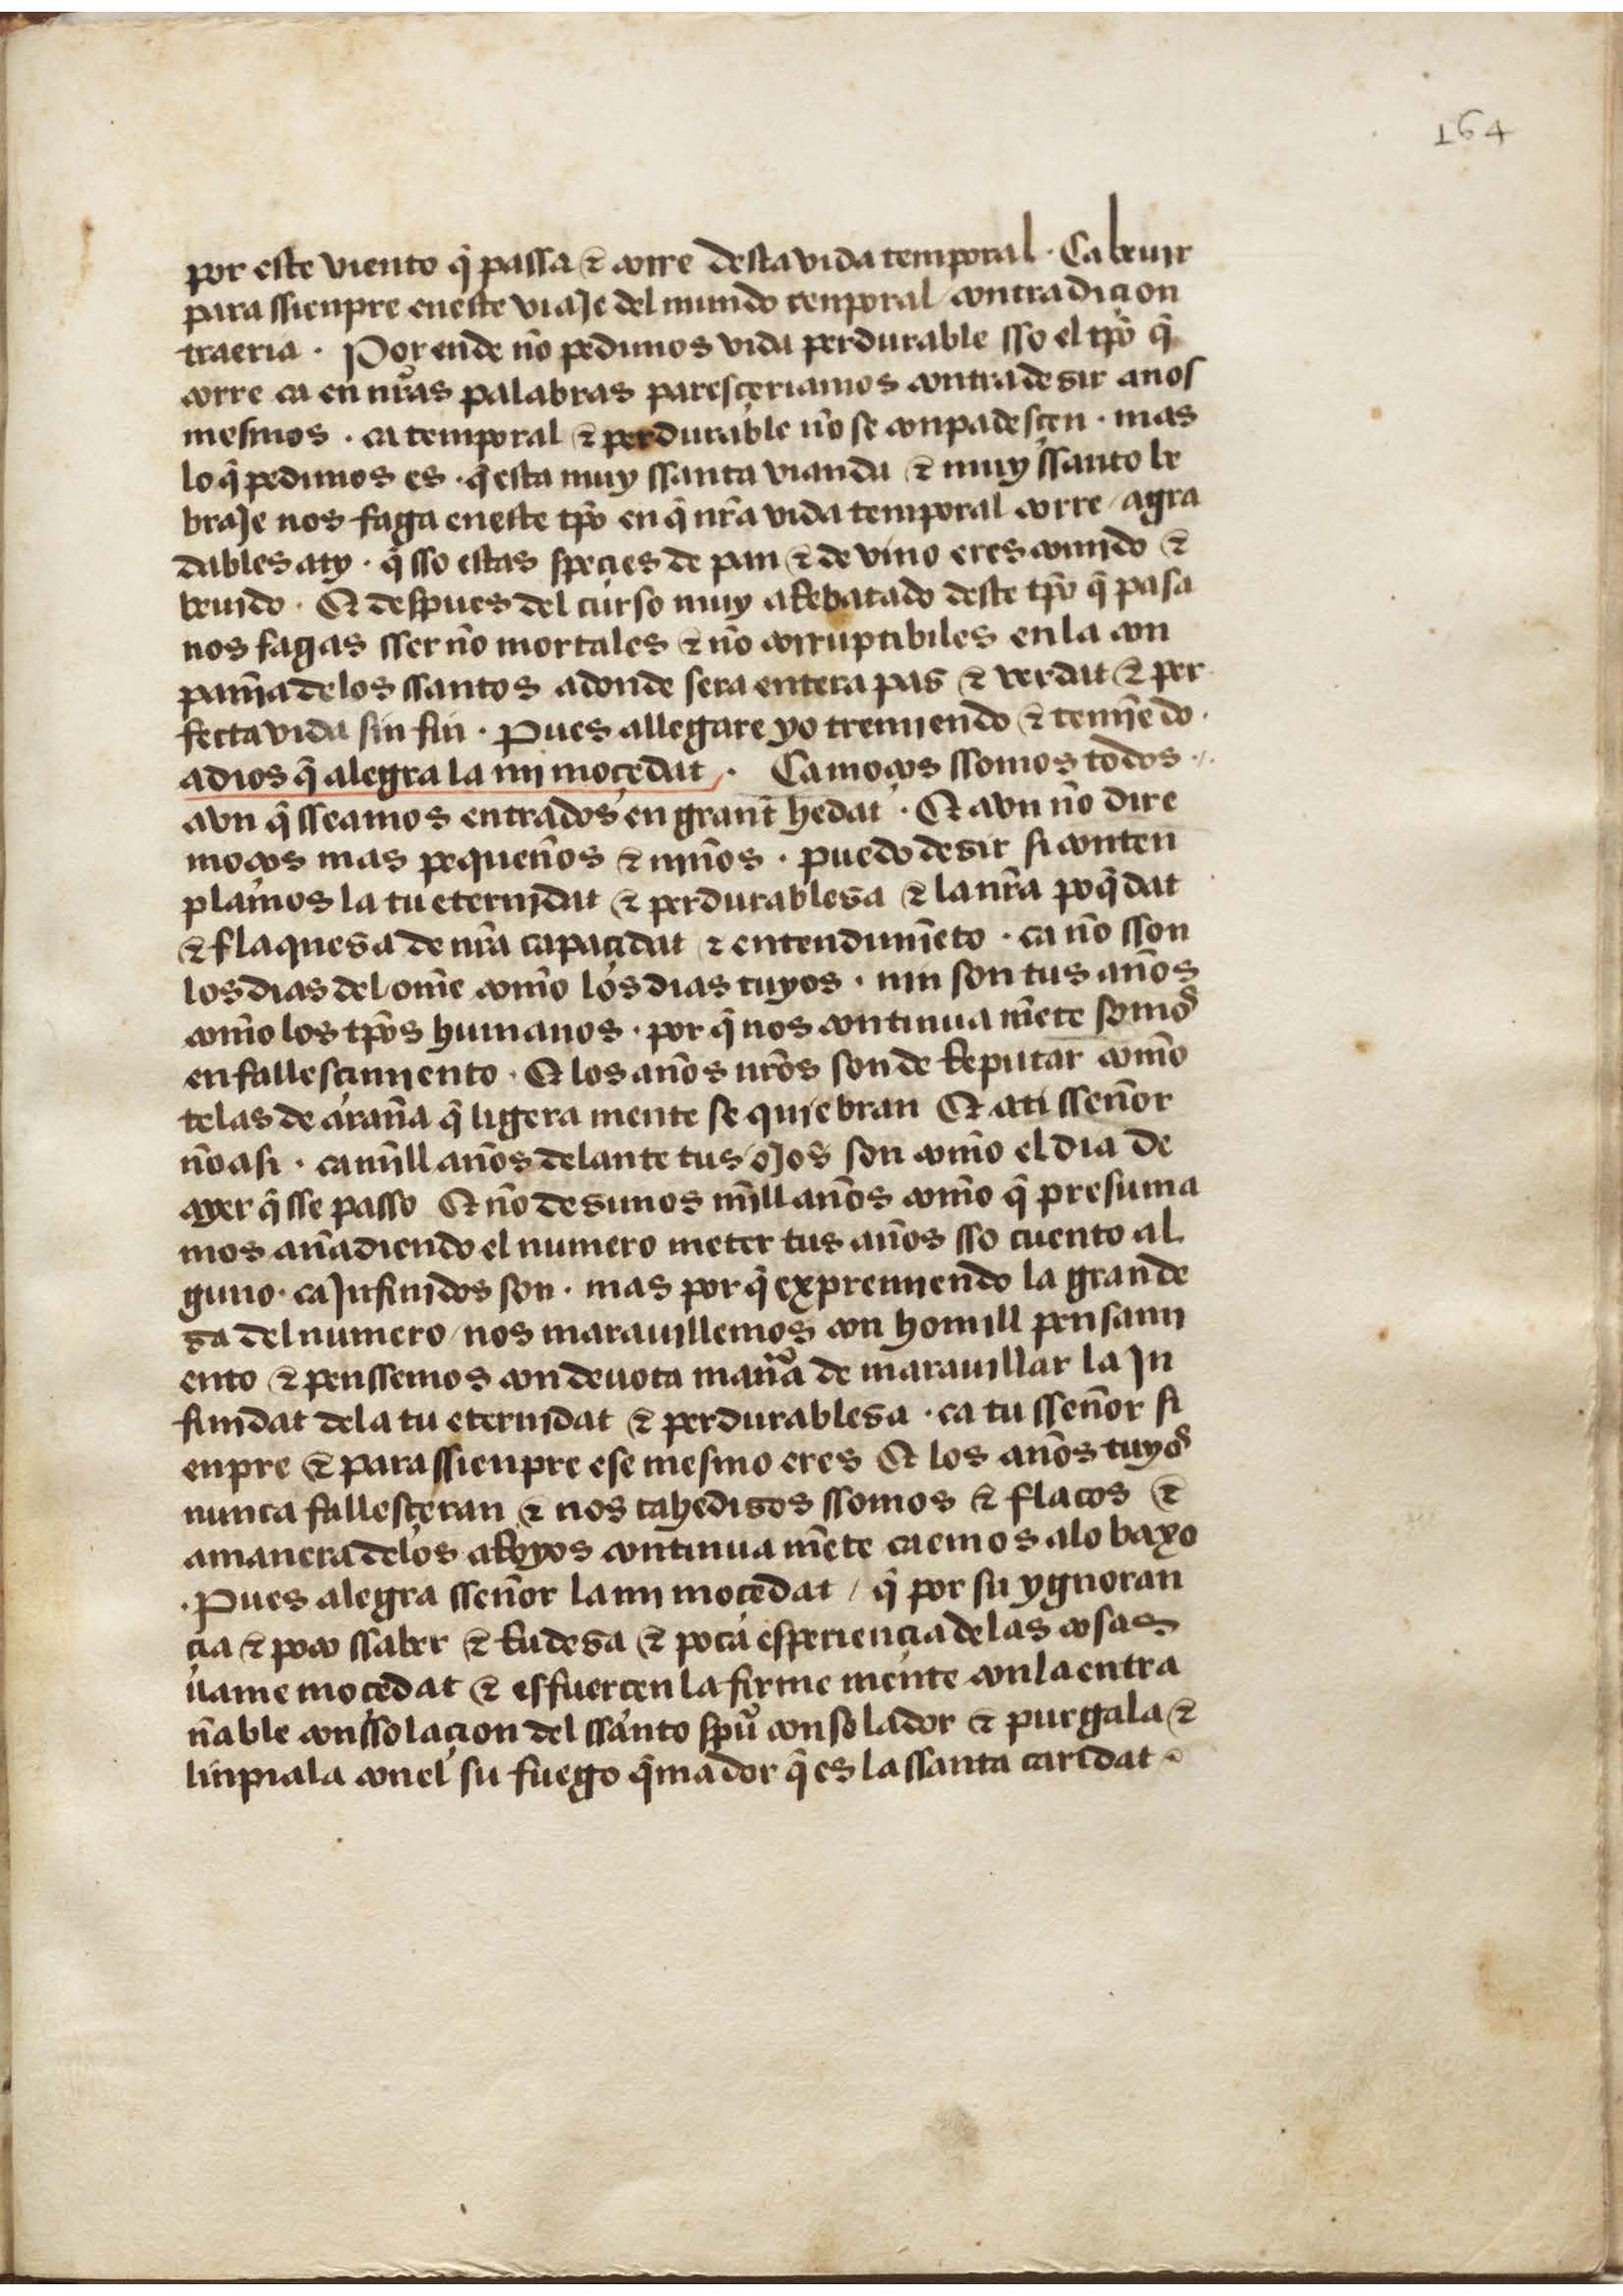 164
por este viento q̃ passa ⁊ corre desta vida temporal · Ca beuir
para ssienpre eneste viaje del mundo temporal / contradiçion
traeria · Por ende nõ pedimos vida perdurable sso el tpõ q̃
corre ca en nr̃as palabras paresçeriamos contradesir anos
mesmos · ca temporal ⁊ perdurable nõ se conpadesçen · mas
lo q̃ pedimos es · q̃ esta muy ssanta vianda ⁊ muy ssanto be
braje nos faga eneste tpõ en q̃ nr̃a vida temporal corre / agra
dables aty · q̃ sso estas speçies de pan ⁊ de vino eres comido ⁊
beuido · Et despues del curso muy aRebatado deste tpõ q̃ pasa
nos fagas sser nõ mortales ⁊ nõ corruptibiles enla con
pañia delos ssantos adonde sera entera pas ⁊ verdat ⁊ per
fecta vida sin fin · Pues allegare yo tremiendo ⁊ temiẽdo ·
adios q̃ alegra la mi moçedat · Ca moços ssomos todos ·
avn q̃ sseamos entrados en grant hedat · Et avn nõ dire
moços mas pequeños ⁊ niños · puedo desir si conten
plamos la tu eternidat ⁊ perdurablesa ⁊ la nr̃a poq̃dat
⁊ flaquesa de nr̃a capaçidat ⁊ entendimiẽto · ca nõ sson
los dias del ome como los dias tuyos · nin son tus años
como los tpõs humanos · por q̃ nos continua mẽte somos
en fallesçimiento · Et los años nr̃os son de Reputar como
telas de araña q̃ ligera mente se quiebran Et ati sseñor
nõ asi · ca mill años delante tus ojos son como el dia de
ayer q̃ sse passo Et nõ desimos mill años como q̃ presuma
mos añadiendo el numero meter tus años sso cuento al
guno · ca jnfinidos son · mas por q̃ expremiendo la grande
sa del numero / nos marauillemos con homill pensami
ento ⁊ penssemos con deuota mañra de marauillar la jn
finidat dela tu eternidat ⁊ perdurablesa · ca tu sseñor si
enpre ⁊ para ssienpre ese mesmo eres Et los años tuyos
nunca fallesçeran ⁊ nos cahedisos ssomos ⁊ flacos ⁊
amanera delos aRoyos continua mẽte caemos alo baxo
· Pues alegra sseñor la mi moçedat / q̃ por su ygnoran
çia ⁊ poco ssaber ⁊ Rudesa ⁊ poca esperiençia de las cosas
llame moçedat ⁊ esfuerçen la firme mente con la entra
ñable conssolaçion del ssanto spũ consolador ⁊ purgala ⁊
linpiala con el su fuego q̃mador q̃ es la ssanta caridat